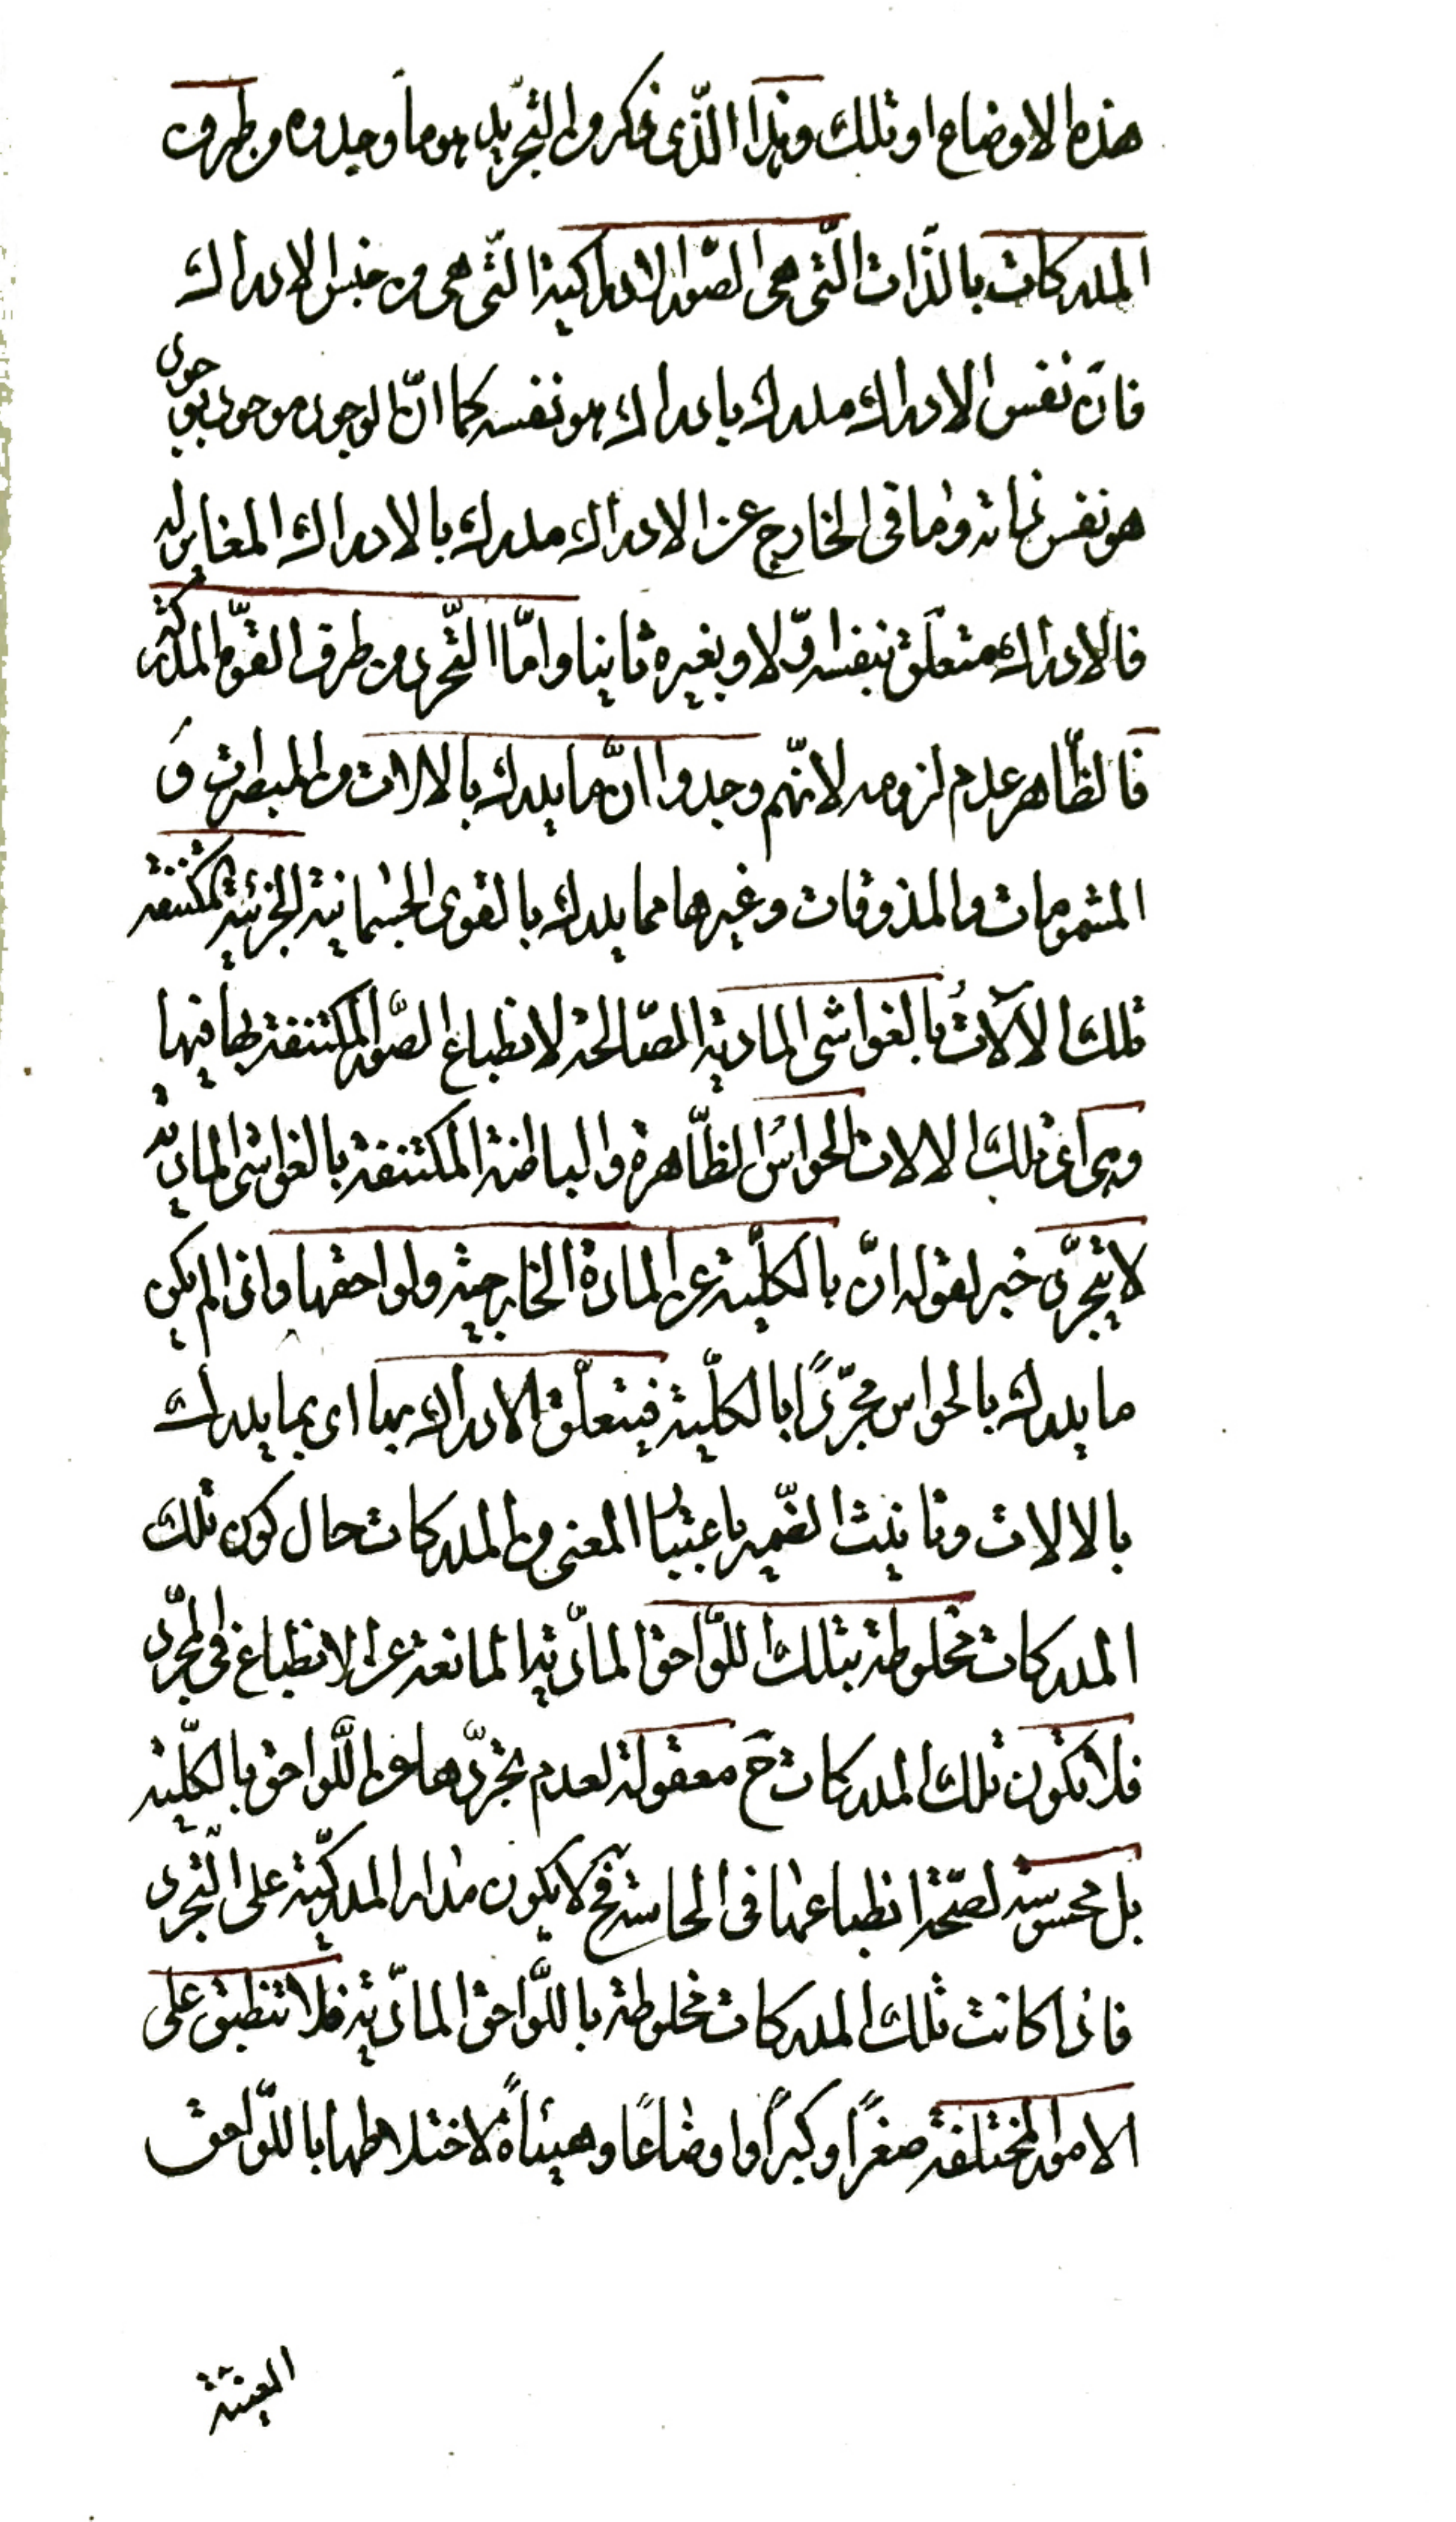 هذه الاوضاع او تلك وهذا الذّى ذكر من التجريد هو ما وجدوه من طرف
المدركات بالذّات الّتى هى الصّور الادراكية الّتى هى من جنس الادراك
فانّ نفس الادراك مدرك بادراك هو نفسه كما انّ الوجود موجود بوجود
هو نفس ذاته وما فى الخارج عن الادراك مدرك بالادراك المغاير له
فالادراك متعلّق بنفسه اوّلا وبغيره ثانيا وامّا التّجرد من طرف القوّة المدركة
فالظّاهر عدم لزومه لانّهم وجدوا انّ ما يدرك بالالات من المبصرات و
المشمومات والمذوقات وغيرها مما يدرك بالقوى الجسمانية الجزئية المكتنفة
تلك الآلاتُ بالغواشى المادية الصّالحة لانطباع الصّور المكتنفة بها فيها
وهى اى تلك الالات الحواسُ الظّاهرة والباطنة المكتنفة بالغواشى المادية
لا يتجرّد خبر لقوله انّ بالكلّية عن المادة الخارجية ولواحقها واذا لم يكن
ما يدرك بالحواس مجرّدًا بالكلّية فيتعلّق الادراك بها اى بما يدرك
بالالات وتانيث الضّمير باعتبار المعنى من المدركات حال كون تلك
المدركات مخلوطة بتلك اللّواحق المادّية المانعة عن الانطباع فى المجرّد
فلا تكون تلك المدركات ح معقولة لعدم تجرّدها عن اللّواحق بالكلّية
بل محسوسة لصحّة انطباعها فى الحاسة فح لا يكون مدار المدركيّة على التّجرد
فاذا كانت تلك المدركات مخلوطة باللّواحق المادّية فلا تنطبق على
الامور المختلفة صغرًا وكبرًا واوضاعًا وهيئاةً لاختلاطها باللّواحق
المعينة